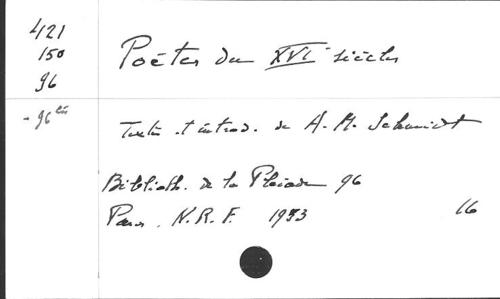 421
150
96
- 96 bis
Poètes du XVIe siècle
Textes et introd. de A. M. Schmidt
Biblioth. de la Pléiade 96
Paris, N.R.F. 1953
16